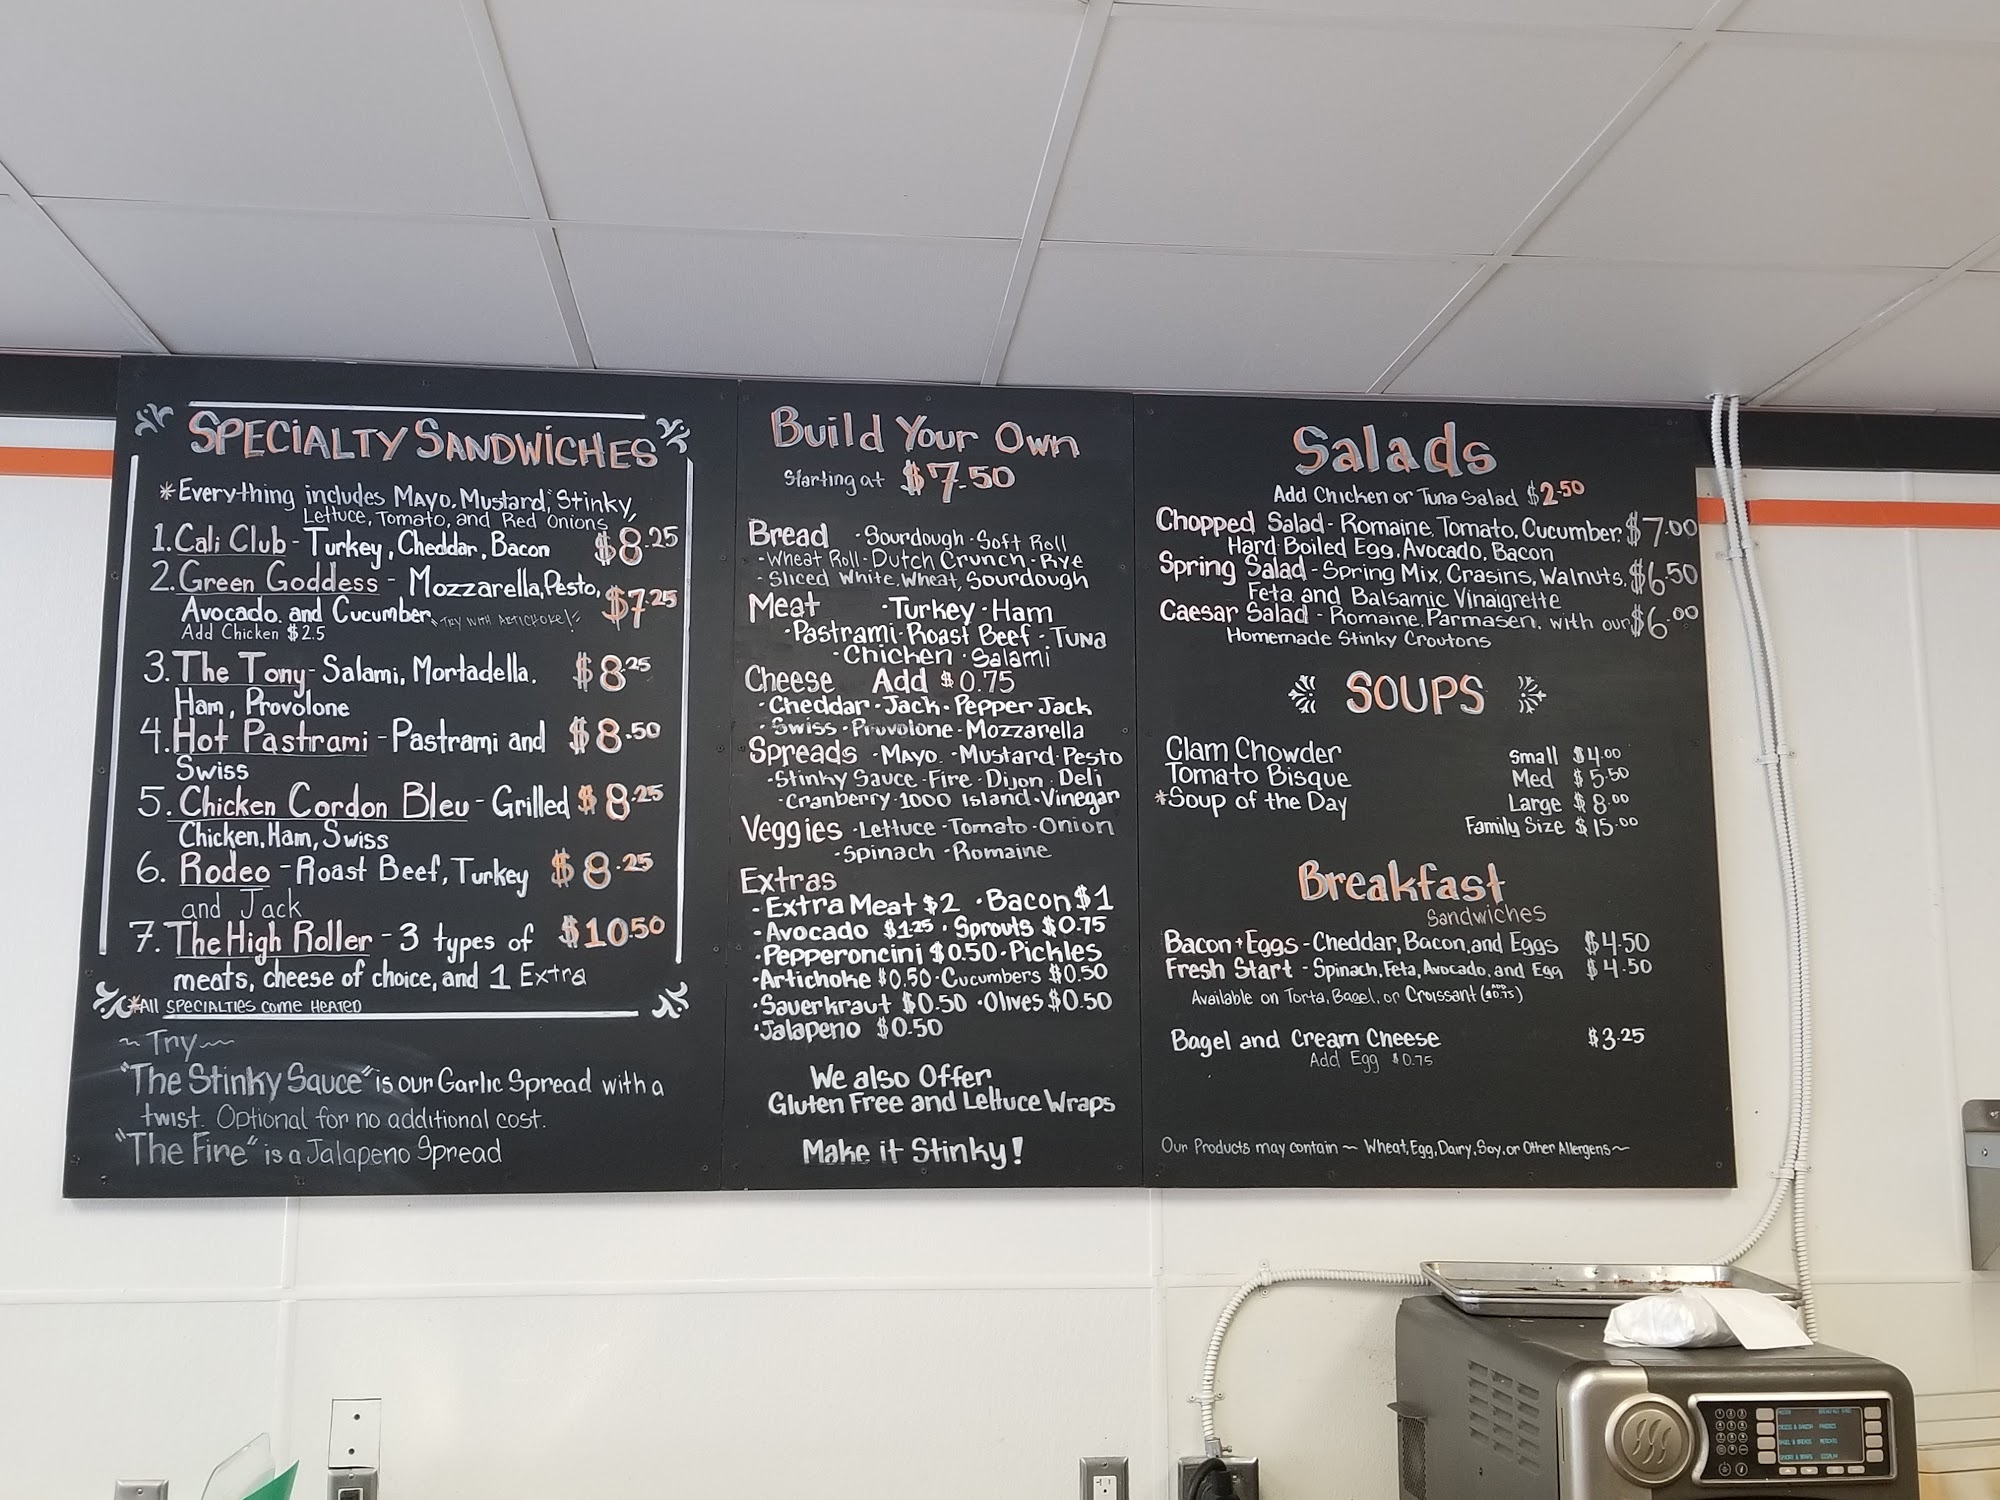 SPECIALTY SANDWICHES
*Everything includes Mayo, Mustard, Stinky,
Lettuce, Tomato, and Red Onions
1. Cali Club - Turkey, Cheddar, Bacon $8.25
2. Green Goddess - Mozzarella, Pesto,
Avocado, and Cucumber "TRY WITH ARTICHOKE!" $7.25
Add Chicken $2.5
3. The Tony - Salami, Mortadella, $8.25
Ham, Provolone
4. Hot Pastrami - Pastrami and $8.50
Swiss
5. Chicken Cordon Bleu - Grilled $8.25
Chicken, Ham, Swiss
6. Rodeo - Roast Beef, Turkey $8.25
and Jack
7. The High Roller - 3 types of $10.50
meats, cheese of choice, and 1 Extra
*All SPECIALTIES COME HEATED
~Try~
"The Stinky Sauce" is our Garlic Spread with a
twist. Optional for no additional cost.
"The Fire" is a Jalapeno Spread
Build Your Own
Starting at $7.50
Bread · Sourdough · Soft Roll
· Wheat Roll · Dutch Crunch · Rye
· Sliced White, Wheat, Sourdough
Meat · Turkey · Ham
· Pastrami · Roast Beef · Tuna
· Chicken · Salami
Cheese Add $0.75
· Cheddar · Jack · Pepper Jack
· Swiss · Provolone · Mozzarella
Spreads · Mayo · Mustard · Pesto
· Stinky Sauce · Fire · Dijon · Deli
· Cranberry · 1000 Island · Vinegar
Veggies · Lettuce · Tomato · Onion
· Spinach · Romaine
Extras
· Extra Meat $2 · Bacon $1
· Avocado $1.25 · Sprouts $0.75
· Pepperoncini $0.50 · Pickles
· Artichoke $0.50 · Cucumbers $0.50
· Sauerkraut $0.50 · Olives $0.50
· Jalapeno $0.50
We also Offer
Gluten Free and Lettuce Wraps
Make it Stinky!
Salads
Add Chicken or Tuna Salad $2.50
Chopped Salad - Romaine, Tomato, Cucumber, $7.00
Hard Boiled Egg, Avocado, Bacon
Spring Salad - Spring Mix, Crasins, Walnuts, $6.50
Feta and Balsamic Vinaigrette
Caesar Salad - Romaine, Parmasen, with our $6.00
Homemade Stinky Croutons
SOUPS
Clam Chowder Small $4.00
Tomato Bisque Med $5.50
*Soup of the Day Large $8.00
Family Size $15.00
Breakfast
Sandwiches
Bacon + Eggs - Cheddar, Bacon, and Eggs $4.50
Fresh Start - Spinach, Feta, Avocado, and Egg $4.50
Available on Torta, Bagel, or Croissant (ADD $0.75)
Bagel and Cream Cheese $3.25
Add Egg $0.75
Our Products may contain ~ Wheat, Egg, Dairy, Soy, or Other Allergens ~